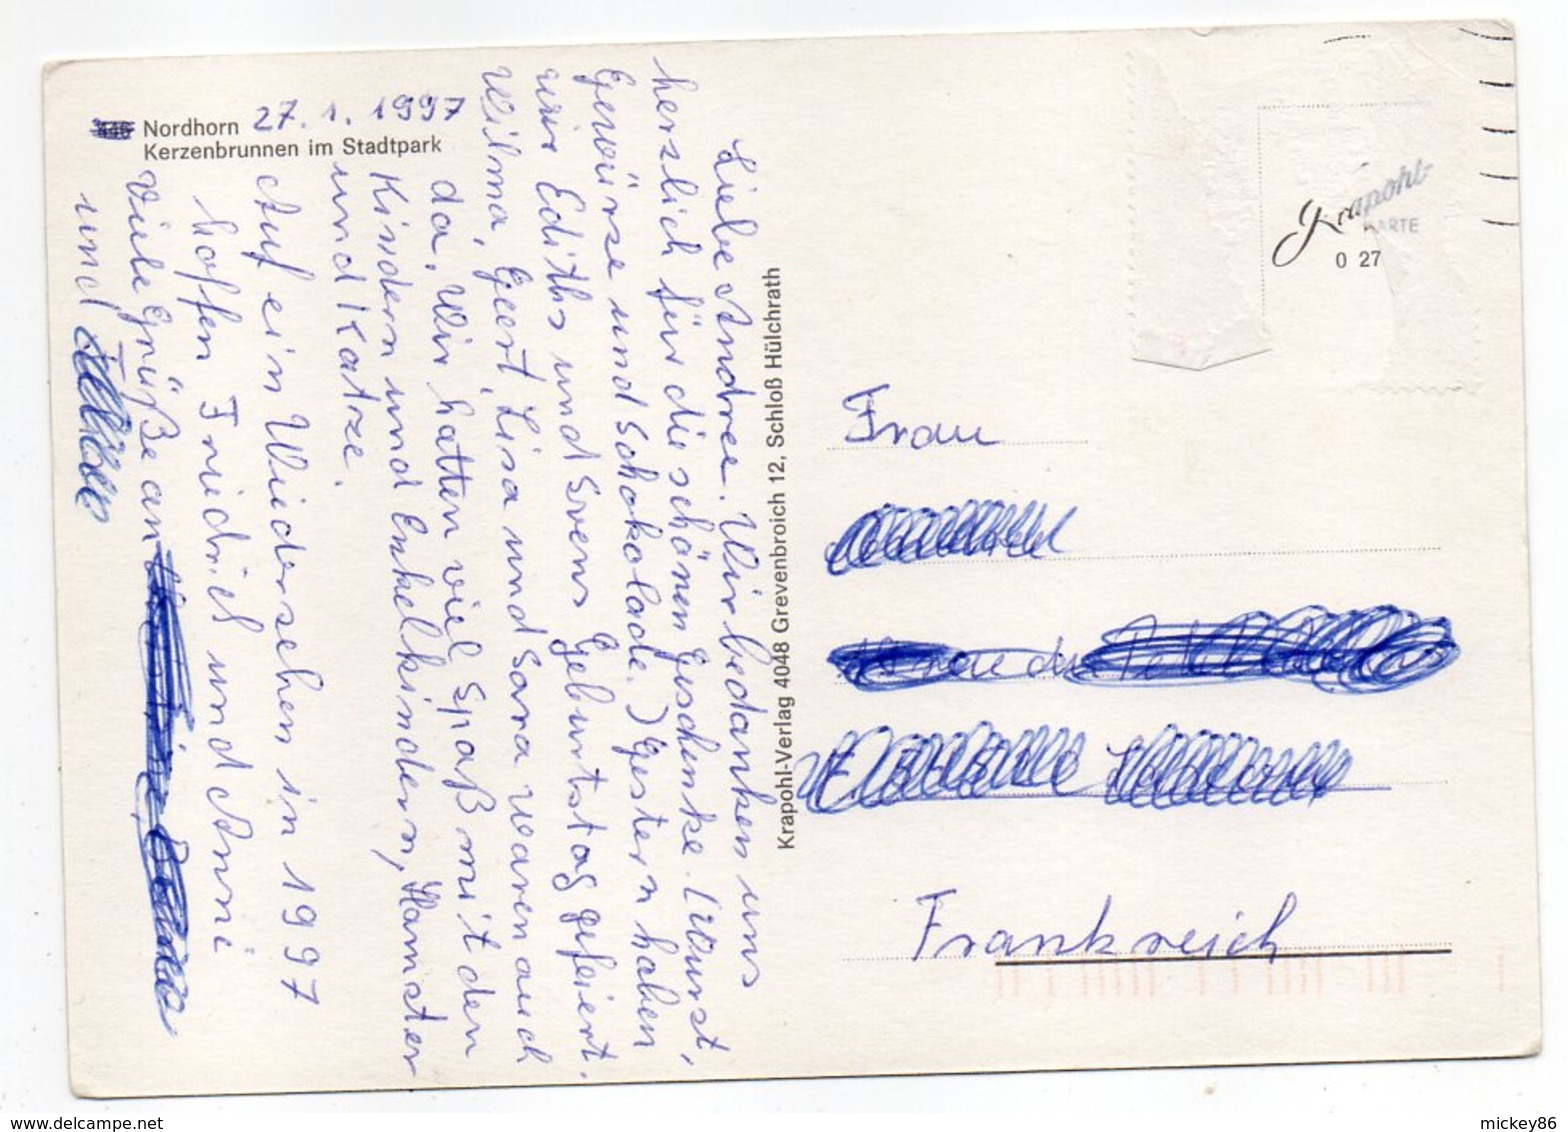 Nordhorn 27. 1. 1997
Kerzenbrunnen im Stadtpark
Liebe Andree. Wir bedanken uns
herzlich für die schönen Geschenke. (Wurst,
Gewürze und Schokolade.) Gestern haben
wir Ediths und Svens Geburtstag gefeiert.
Wilma, Geert, Lisa und Sara waren auch
da. Wir hatten viel Spaß mit den
Kindern und Enkelkindern, Hamster
und Katze.
Auf ein Wiedersehen in 1997
hoffen Friedrich und Anni
Viele Grüße an
und
Krapohl-Verlag 4048 Grevenbroich 12, Schloß Hülchrath
Krapohl-
KARTE
0 27
Frau
Frankreich
www.delcampe.net
mickey86